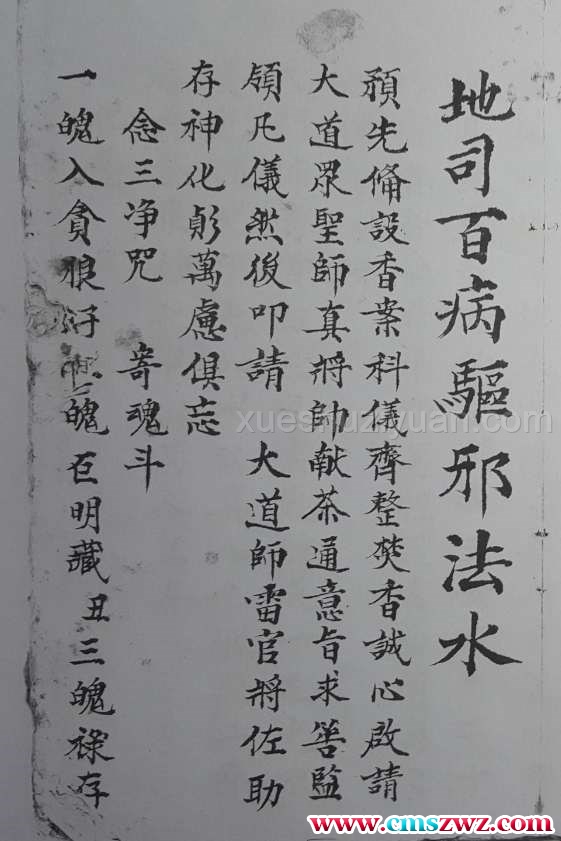 地司百病驅邪法水
預先備設香案科儀齊整焚香誠心啟請
大道眾聖師真將帥献茶通意旨求善監
領凡儀然後叩請 大道師雷官將佐助
存神化 萬慮俱忘
念三净咒 寄魂斗
一魄入貪狼 魄巨明藏丑三魄祿存
xueshuziyuan.com
www.cmszwz.com